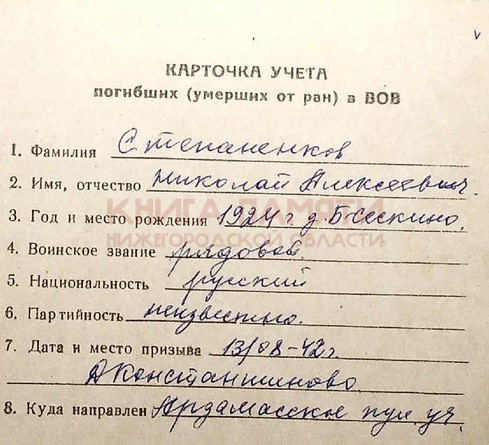 КАРТОЧКА УЧЕТА
погибших (умерших от ран) в ВОВ
1. Фамилия Степаненков
2. Имя, отчество Николай Алексеевич.
КНИГА ПАМЯТИ
3. Год и место рождения 1924 г д. Б Сескино.
НИЖЕГОРОДСКОЙ ОБЛАСТИ
4. Воинское звание рядовой
5. Национальность русский
6. Партийность неизвестно.
7. Дата и место призыва 13/08-42 г.
Д Константиново
8. Куда направлен Ардамасское пул. уч